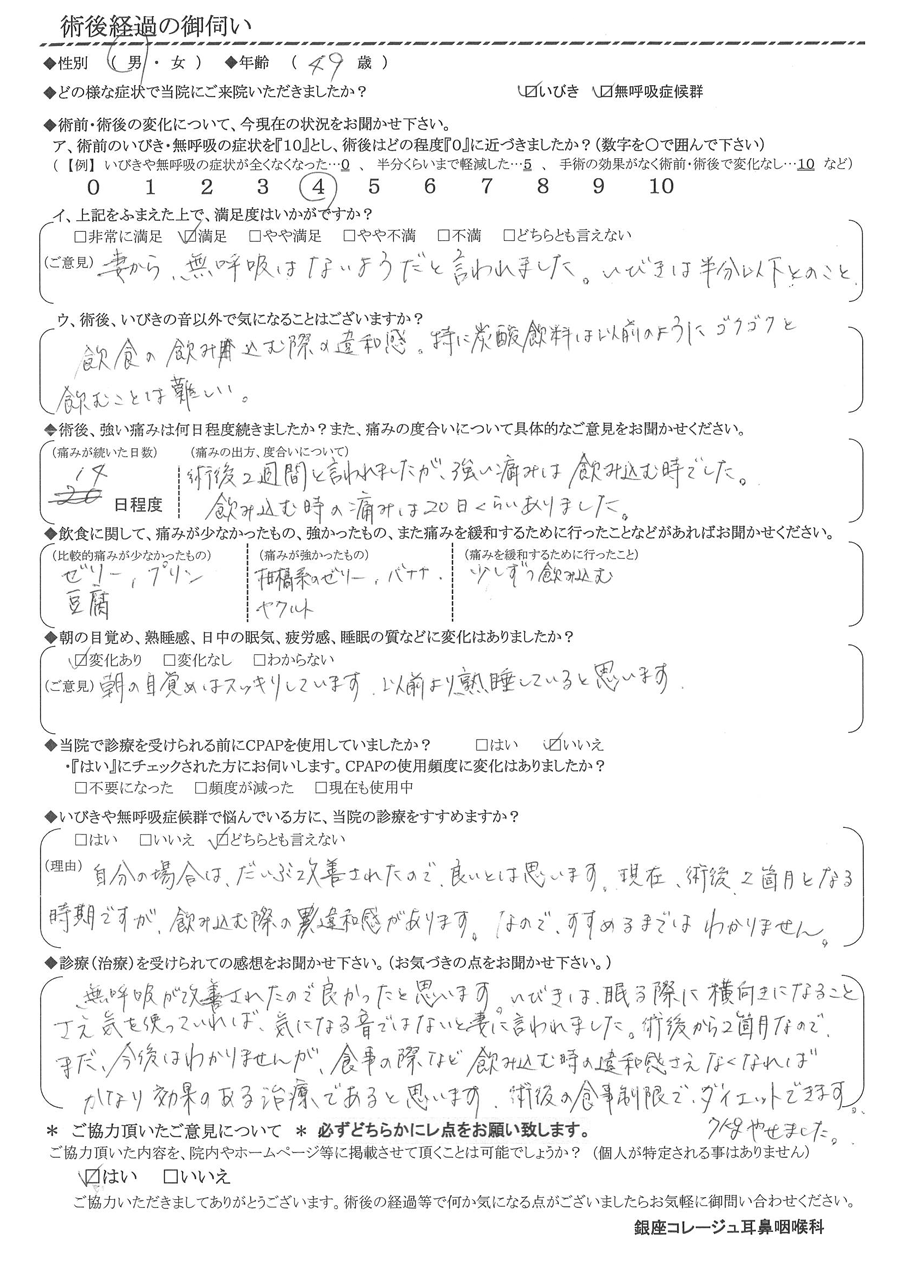 術後経過の御伺い
◆性別 （ 男 ・ 女 ） ◆年齢 （ 49 歳 ）
◆どの様な症状で当院にご来院いただきましたか？ ☑いびき ☑無呼吸症候群
◆術前・術後の変化について、今現在の状況をお聞かせ下さい。
ア、術前のいびき・無呼吸の症状を『10』とし、術後はどの程度『0』に近づきましたか？（数字を〇で囲んで下さい）
（【例】 いびきや無呼吸の症状が全くなくなった…0 、 半分くらいまで軽減した…5 、 手術の効果がなく術前・術後で変化なし…10 など）
0 1 2 3 4 5 6 7 8 9 10
イ、上記をふまえた上で、満足度はいかがですか？
□非常に満足 ☑満足 □やや満足 □やや不満 □不満 □どちらとも言えない
（ご意見） 妻から、無呼吸はないようだと言われました。いびきは半分以下とのこと.
ウ、術後、いびきの音以外で気になることはございますか？
飲食の飲み込む際の違和感。特に炭酸飲料は以前のようにゴクゴクと
飲むことは難しい。
◆術後、強い痛みは何日程度続きましたか？また、痛みの度合いについて具体的なご意見をお聞かせください。
（痛みが続いた日数） （痛みの出方、度合いについて）
14 術後2週間と言われましたが、強い痛みは飲み込む時でした。
20 日程度 飲み込む時の痛みは20日くらいありました。
◆飲食に関して、痛みが少なかったもの、強かったもの、また痛みを緩和するために行ったことなどがあればお聞かせください。
（比較的痛みが少なかったもの） （痛みが強かったもの） （痛みを緩和するために行ったこと）
ゼリー, プリン 柑橘系のゼリー, バナナ. 少しずつ飲み込む
豆腐 ヤクルト
◆朝の目覚め、熟睡感、日中の眠気、疲労感、睡眠の質などに変化はありましたか？
☑変化あり □変化なし □わからない
（ご意見） 朝の目覚めはスッキリしています. 以前より熟睡していると思います.
◆当院で診療を受けられる前にCPAPを使用していましたか？ □はい ☑いいえ
・『はい』にチェックされた方にお伺いします。CPAPの使用頻度に変化はありましたか？
□不要になった □頻度が減った □現在も使用中
◆いびきや無呼吸症候群で悩んでいる方に、当院の診療をすすめますか？
□はい □いいえ ☑どちらとも言えない
（理由） 自分の場合は、だいぶ改善されたので、良いとは思います。現在、術後2箇月となる
時期ですが、飲み込む際の違和感があります。なので、すすめるまではわかりません。
◆診療（治療）を受けられての感想をお聞かせ下さい。（お気づきの点をお聞かせ下さい。）
無呼吸が改善されたので良かったと思います。いびきは、眠る際に横向きになること
さえ気を使っていれば、気になる音ではないと妻に言われました。術後から2箇月なので、
まだ、今後はわかりませんが、食事の際など飲み込む時の違和感さえなくなれば
かなり効果のある治療であると思います. 術後の食事制限で、ダイエットできます。
7kgやせました。
＊ ご協力頂いたご意見について ＊ 必ずどちらかにレ点をお願い致します。
ご協力頂いた内容を、院内やホームページ等に掲載させて頂くことは可能でしょうか？ （個人が特定される事はありません）
☑はい □いいえ
ご協力いただきましてありがとうございます。術後の経過等で何か気になる点がございましたらお気軽に御問い合わせください。
銀座コレージュ耳鼻咽喉科